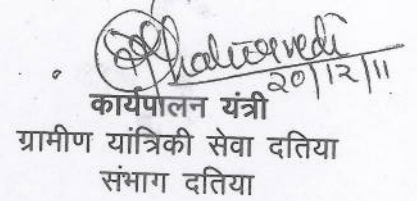 Chaturvedi
20/12/11
कार्यपालन यंत्री
ग्रामीण यांत्रिकी सेवा दतिया
संभाग दतिया